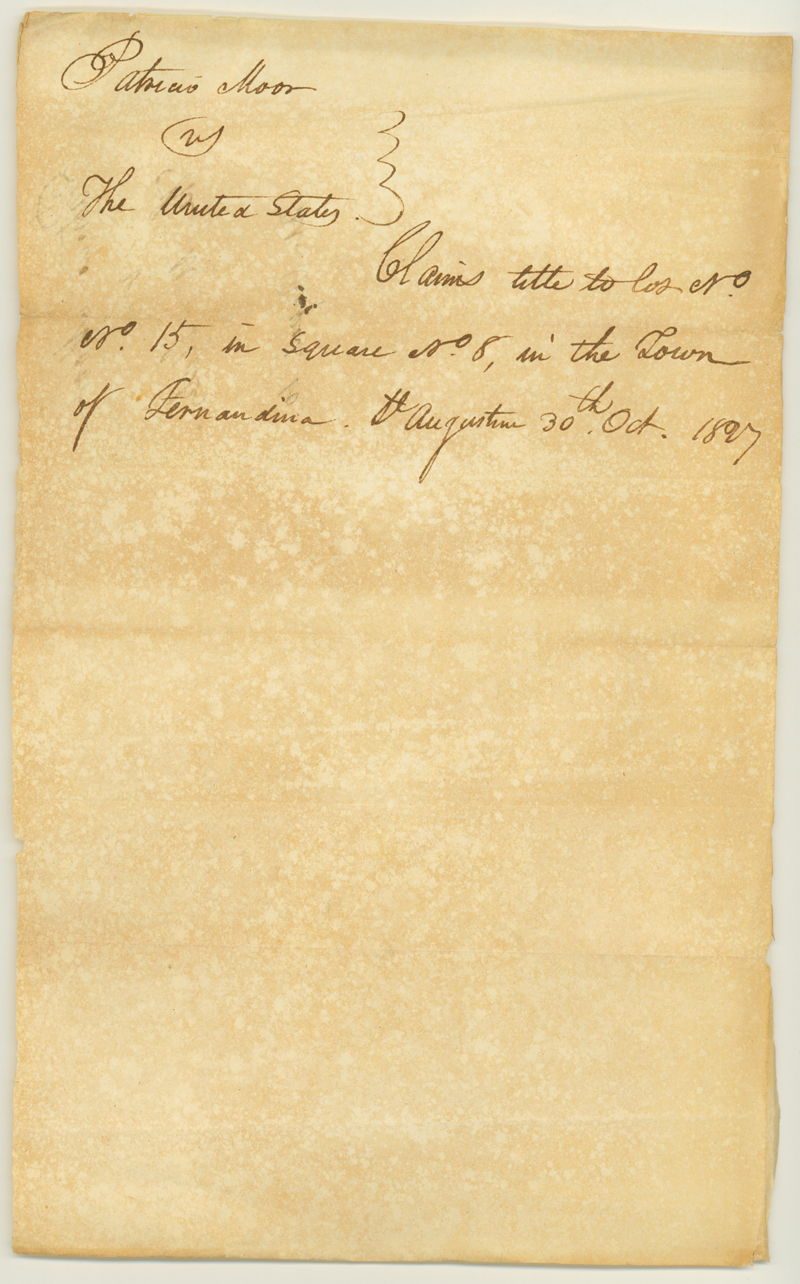 Patricio Moor
vs
The United States.
Claims title to lot No.
No. 15, in Square No. 8, in the Town
of Fernandina. St Augustine 30th. Oct. 1827